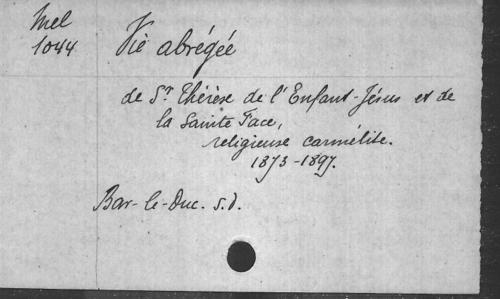 Mel
1044
Vie abrégée
de St Thérèse de l'Enfant-Jésus et de
la Sainte Face,
religieuse carmélite.
1873-1897.
Bar-le-Duc. s.d.